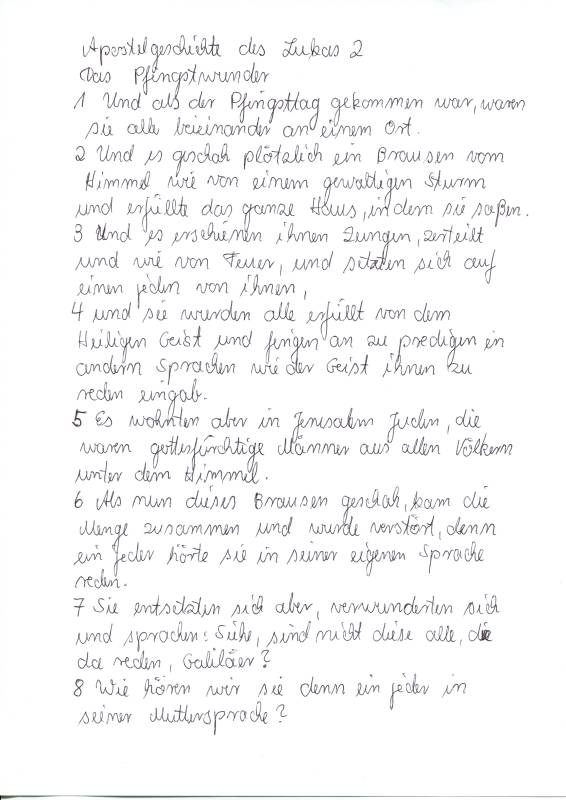 Apostelgeschichte des Lukas 2
Das Pfingstwunder
1 Und als der Pfingsttag gekommen war, waren
sie alle beieinander an einem Ort.
2 Und es geschah plötzlich ein Brausen vom
Himmel wie von einem gewaltigen Sturm
und erfüllte das ganze Haus, in dem sie saßen.
3 Und es erschienen ihnen Zungen, zerteilt
und wie von Feuer, und setzten sich auf
einen jeden von ihnen,
4 und sie wurden alle erfüllt von dem
Heiligen Geist und fingen an zu predigen in
andern Sprachen wie der Geist ihnen zu
reden eingab.
5 Es wohnten aber in Jerusalem Juden, die
waren gottesfürchtige Männer aus allen Völkern
unter dem Himmel.
6 Als nun dieses Brausen geschah, kam die
Menge zusammen und wurde verstört, denn
ein jeder hörte sie in seiner eigenen Sprache
reden.
7 Sie entsetzten sich aber, verwunderten sich
und sprachen: Siehe, sind nicht diese alle, die
da reden, Galiläer?
8 Wie hören wir sie denn ein jeder in
seiner Muttersprache?